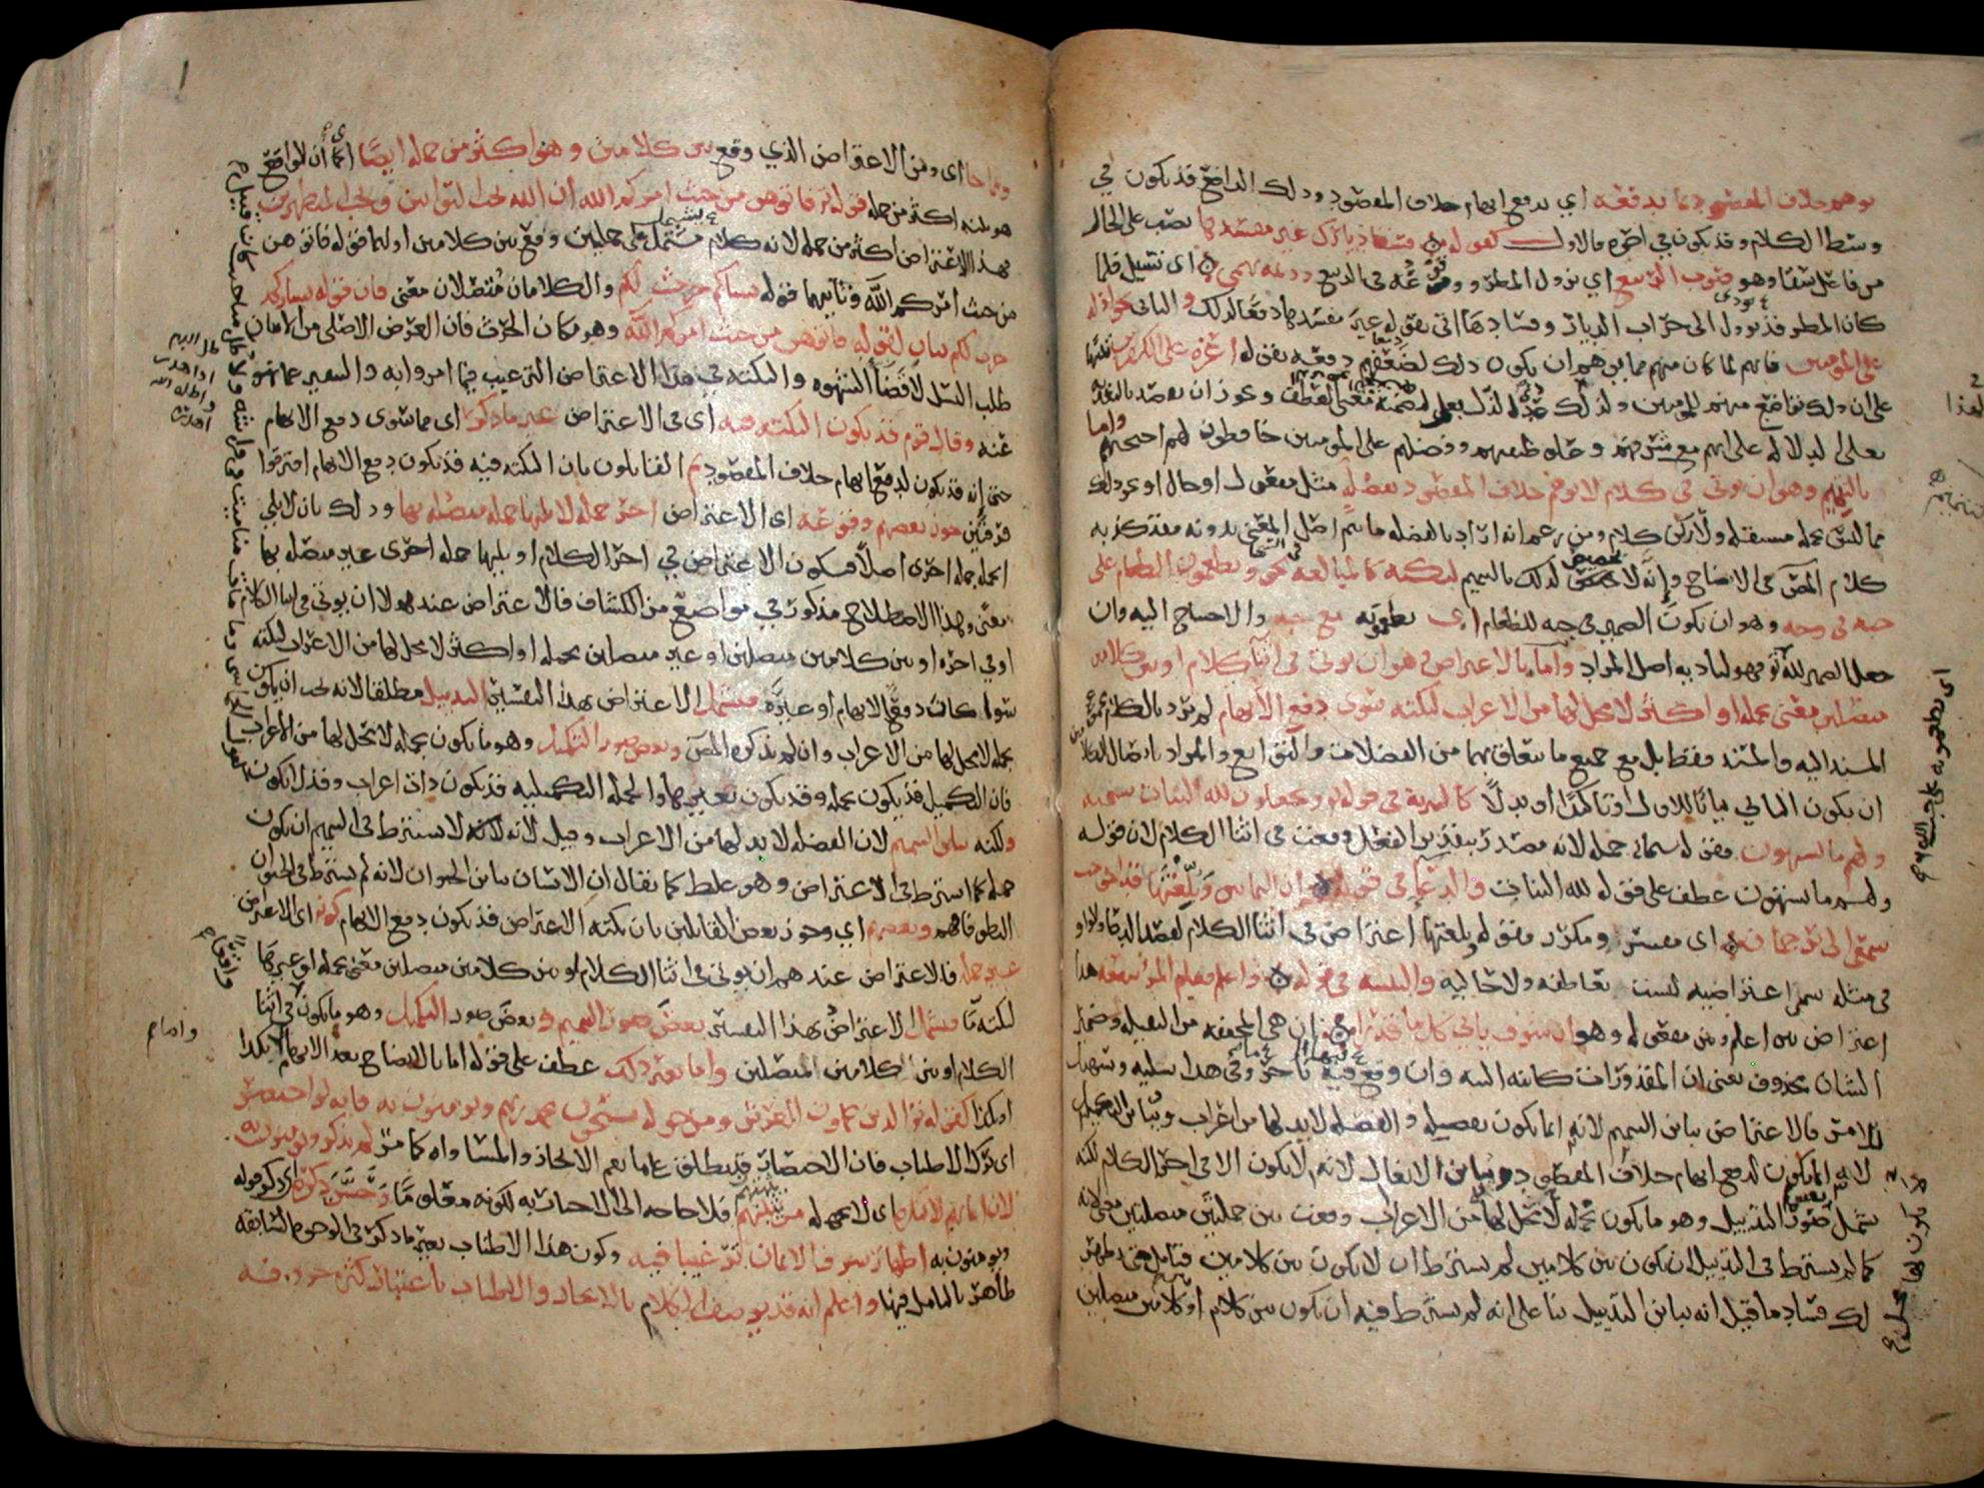 يوهم خلاف المقصود بما يدفعه اي يدفع ايهام خلاف المقصود وذلك الدافع قد يكون في
وسط الكلام وقد يكون في اخره فالاول كقوله فسقى ديارك غير مفسدها نصب على الحال
من فاعل سقا وهو صوب الربيع اي نزول المطر ووقوعه في الربيع وديمة تهمي اي تسيل فلما
كان المطر قد يؤول الى خراب الديار وفسادها اتى بقوله غير مفسدها دفعا لذلك والثاني نحو اذلة
على المؤمنين فانهم لما كان مما يوهم ان يكون ذلك لضعفهم دفعه بقوله اعزة على الكافرين تنبيها
على ان ذلك تواضع منهم للمؤمنين ولذلك عدي الذل بعلى لتضمنه معنى العطف ويجوز ان يقصد بالتعدية
بعلى الدلالة على انهم مع شرفهم وعلو طبقتهم وفضلهم على المؤمنين خافضون لهم اجنحتهم واما
بالتتميم وهو ان يؤتى في كلام لا يوهم خلاف المقصود بفضلة مثل مفعول او حال او نحو ذلك
مما ليس بجملة مستقلة ولا ركن كلام ومن زعم انه اراد بالفضلة ما يتم اصل المعنى بدونه فقد كذبه
كلام المص في الايضاح وانه لا تخصيص لذلك بالتتميم لنكتة كالمبالغة نحو ويطعمون الطعام على
حبه في وجه وهو ان يكون الضمير في حبه للطعام اي يطعمونه مع حبه والاحتياج اليه وان
جعل الضمير لله تع فهو لتادية اصل المراد واما بالاعتراض وهو ان يؤتى في اثناء كلام او بين كلامين
متصلين معنى بجملة او اكثر لا محل لها من الاعراب لنكتة سوى دفع الايهام لم يرد بالكلام مجموع
المسند اليه والمسند فقط بل مع جميع ما يتعلق بهما من الفضلات والتوابع والمراد باتصال الكلامين
ان يكون الثاني بيانا للاول او تاكيدا او بدلا كالتنزيه في قوله تع ويجعلون لله البنات سبحنه
ولهم ما يشتهون فقوله سبحانه جملة لانه مصدر بتقدير الفعل وقعت في اثناء الكلام لان قوله
ولهم ما يشتهون عطف على قوله لله البنات والدعاء في قوله ان الثمانين وبلغتها قد احوجت
سمعي الى ترجمان اي مفسر ومكرر فقوله وبلغتها اعتراض في اثناء الكلام لقصد الدعاء والواو
في مثله تسمى اعتراضية ليست بعاطفة ولا حالية والتنبيه في قوله واعلم فعلم المرء ينفعه هذا
اعتراض بين اعلم وبين مفعوله وهو ان سوف ياتي كل ما قدرا ان هي المخففة من الثقيلة وضمير
الشان محذوف يعني ان المقدورات كائنة البتة وان وقع فيه تاخير وفي هذا تسلية وتسهيل
للامر فالاعتراض يباين التتميم لانه انما يكون بفضلة والفضلة لا بد لها من اعراب ويباين التكميل
لانه انما يكون لدفع ايهام خلاف المقصود ويباين الايغال لانه لا يكون الا في اخر الكلام لكنه
يشمل بعض صور التذييل وهو ما يكون بجملة لا محل لها من الاعراب وقعت بين جملتين متصلتين معنى لانه
كما لم يشترط في التذييل ان يكون بين كلامين لم يشترط ان لا يكون بين كلامين فتامل حتى يظهر
لك فساد ما قيل انه يباين التذييل بناء على انه لم يشترط فيه ان يكون بين كلام او كلامين متصلين
اي يطعمونه على حب
لهذا
ومما جا اي ومن الاعتراض الذي وقع بين كلامين وهو اكثر من جملة ايضا
هو بينه اكثر من جملة قوله تع فاتوهن من حيث امركم الله ان الله يحب التوابين ويحب المتطهرين
فهذا الاعتراض اكثر من جملة لانه كلام يشتمل على جملتين وقع بين كلامين اولهما قوله فاتوهن
من حيث امركم الله وثانيهما قوله نساؤكم حرث لكم والكلامان متصلان معنى فان قوله نساؤكم
حرث لكم بيان لقوله فاتوهن من حيث امركم الله وهو مكان الحرث فان الغرض الاصلي من الاتيان
طلب النسل لا قضا الشهوة والنكتة في هذا الاعتراض الترغيب فيما امروا به والتنفير عما نهوا
عنه وقال قوم قد يكون النكتة فيه اي في الاعتراض غير ما ذكر اي مما سوى دفع الايهام
حتى انه قد يكون لدفع ايهام خلاف المقصود ثم القائلون بان النكتة فيه قد يكون دفع الايهام افترقوا
فرقتين جوز بعضهم وقوعه اي الاعتراض اخر جملة لا يليها جملة متصلة بها وذلك بان لا يلي
الجملة جملة اخرى اصلا فيكون الاعتراض في اخر الكلام او يليها جملة اخرى غير متصلة بها
معنى وهذا الاصطلاح مذكور في مواضع من الكشاف فالاعتراض عند هولا ان يؤتى في اثنا الكلام
او في اخره او بين كلامين متصلين او غير متصلين بجملة او اكثر لا محل لها من الاعراب لنكتة
سوا كانت دفع الايهام او غيره فيشمل الاعتراض بهذا التفسير التذييل مطلقا لانه يجب ان يكون
بجملة لا محل لها من الاعراب وان لم يذكره المص وبعض صور التكميل وهو ما يكون بجملة لا محل لها من الاعراب
فان التكميل قد يكون بجملة وقد يكون بغيرها والجملة التكميلية قد تكون ذات اعراب وقد لا تكون
ولكنه يباين التتميم لان الفضلة لا بد لها من الاعراب وقيل لانه لا يشترط في التتميم ان يكون
جملة كما اشترط في الاعتراض وهو غلط كما يقال ان الانسان يباين الحيوان لانه لم يشترط في الحيوان
النطق فافهم وبعضهم اي وجوز بعض القائلين بان نكتة الاعتراض قد يكون دفع الايهام كونه اي الاعتراض
غير جملة فالاعتراض عندهم ان يؤتى في اثنا الكلام او بين كلامين متصلين معنى بجملة او غيرها
لنكتة ما فيشمل الاعتراض بهذا التفسير بعض صور التتميم وبعض صور التكميل وهو ما يكون في اثنا
الكلام او بين الكلامين المتصلين واما بغير ذلك عطف على قوله اما بالايضاح بعد الابهام واما بكذا
او بكذا كقوله تع الذين يحملون العرش ومن حوله يسبحون بحمد ربهم ويؤمنون به فانه لو اختصر
اي ترك الاطناب فان الاختصار قد يطلق على ما يعم الايجاز والمساواة كما مر لم يذكر ويؤمنون به
لان ايمانهم لا ينكره اي لا يجهله من يثبتهم فلا حاجة الى الاخبار به لكونه معلوما وحسن ذكره اي ذكر قوله
ويؤمنون به اظهار شرف الايمان ترغيبا فيه وكون هذا الاطناب بغير ما ذكر من الوجوه السابقة
ظاهر بالتامل فيها واعلم انه قد يوصف الكلام بالايجاز والاطناب باعتبار كثرة حروفه